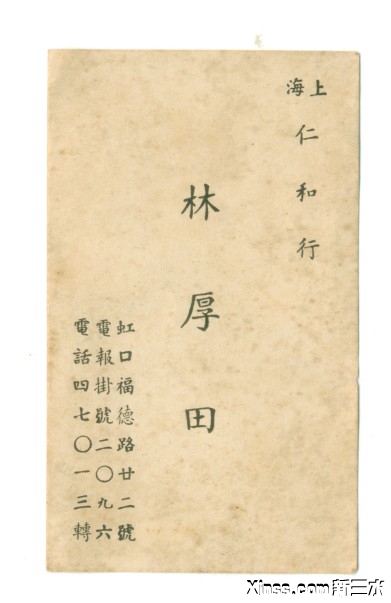 上海
仁和行
林厚田
虹口福德路廿二號
電報掛號二〇九六
電話四七〇一三轉
Xinss.com新三水